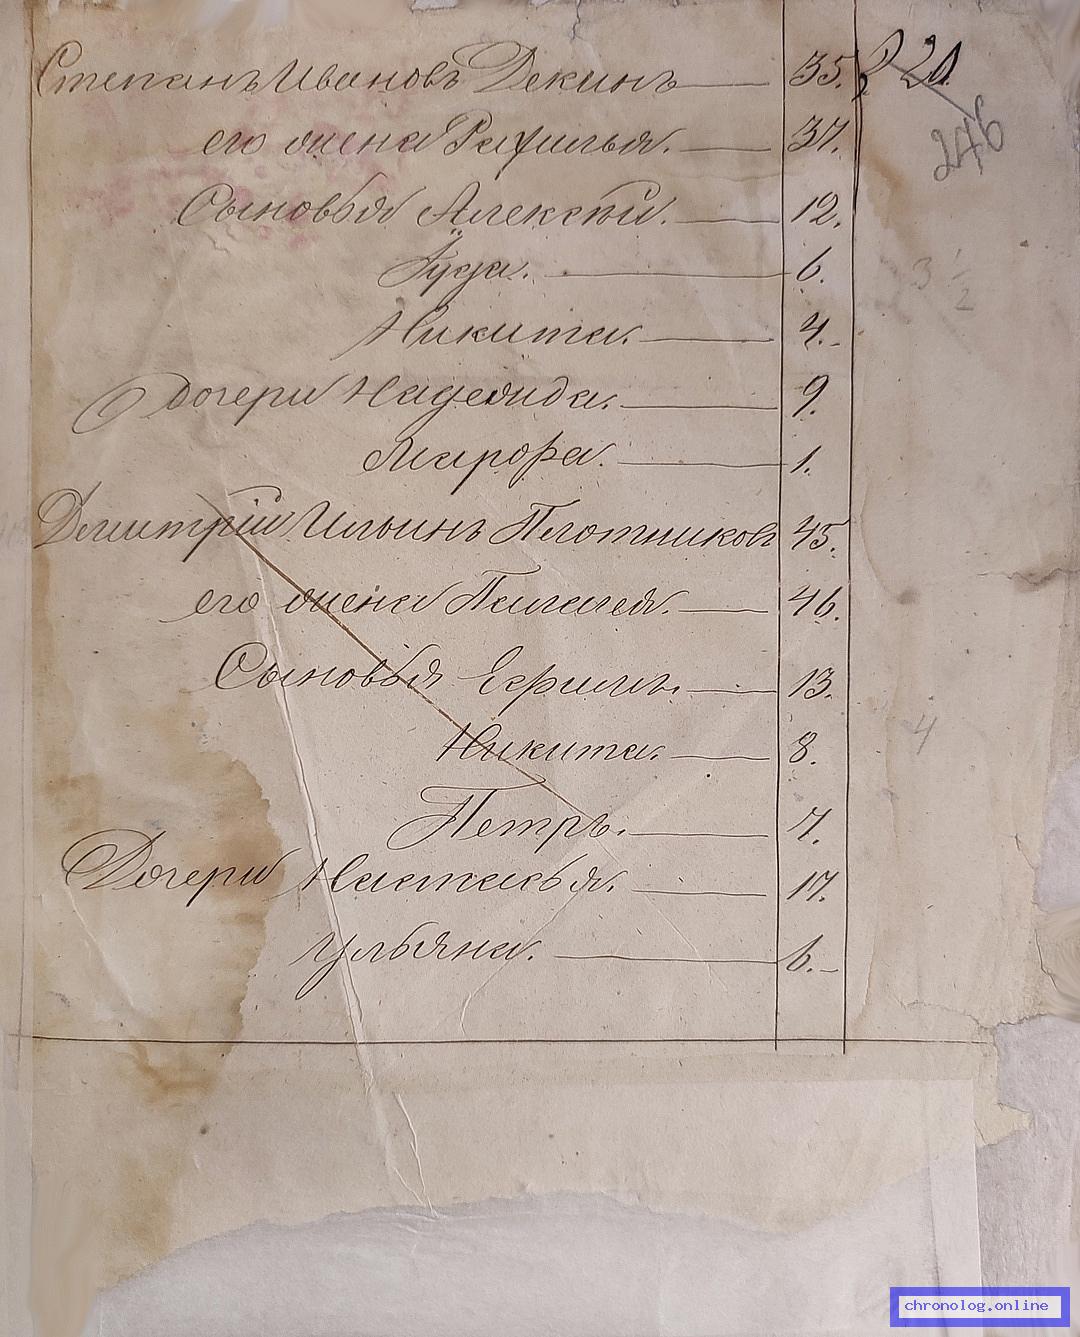 Степанъ Ивановъ Декинъ — 35. 20.
его жена Рахилья. — 37. 246
Сыновья Алексѣй. — 12.
Іуда. — 6. 3 1/2
Никита. — 4.
Дочери Надежда. — 9.
Марфа. — 1.
Дмитрій Ильинъ Плотниковъ 45.
его жена Палагея. — 46.
Сыновья Ефимъ. — 13.
Никита. — 8. 4
Петръ. — 7.
Дочери Настасья. — 17.
Ульяна. — 6.
chronolog.online